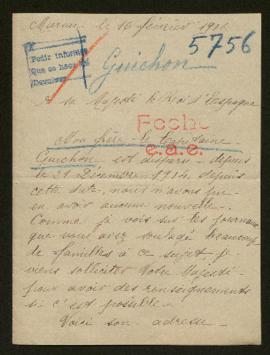 le 16 février 1916
5756
Pedir informes
Que se haga
Devolver
Guichon
A sa Majesté le Roi d'Espagne
Foche
e.a.e.
Mon père le Capitaine
Guichon, est disparu depuis
le 21 Décembre 1914 depuis
cette date, nous n'avons pu
en avoir aucune nouvelle.
Comme je vois sur les journaux
que vous avez soulagé beaucoup
de familles à ce sujet, je
viens solliciter Votre Majesté
pour avoir des renseignements
si c'est possible.
Voici son adresse